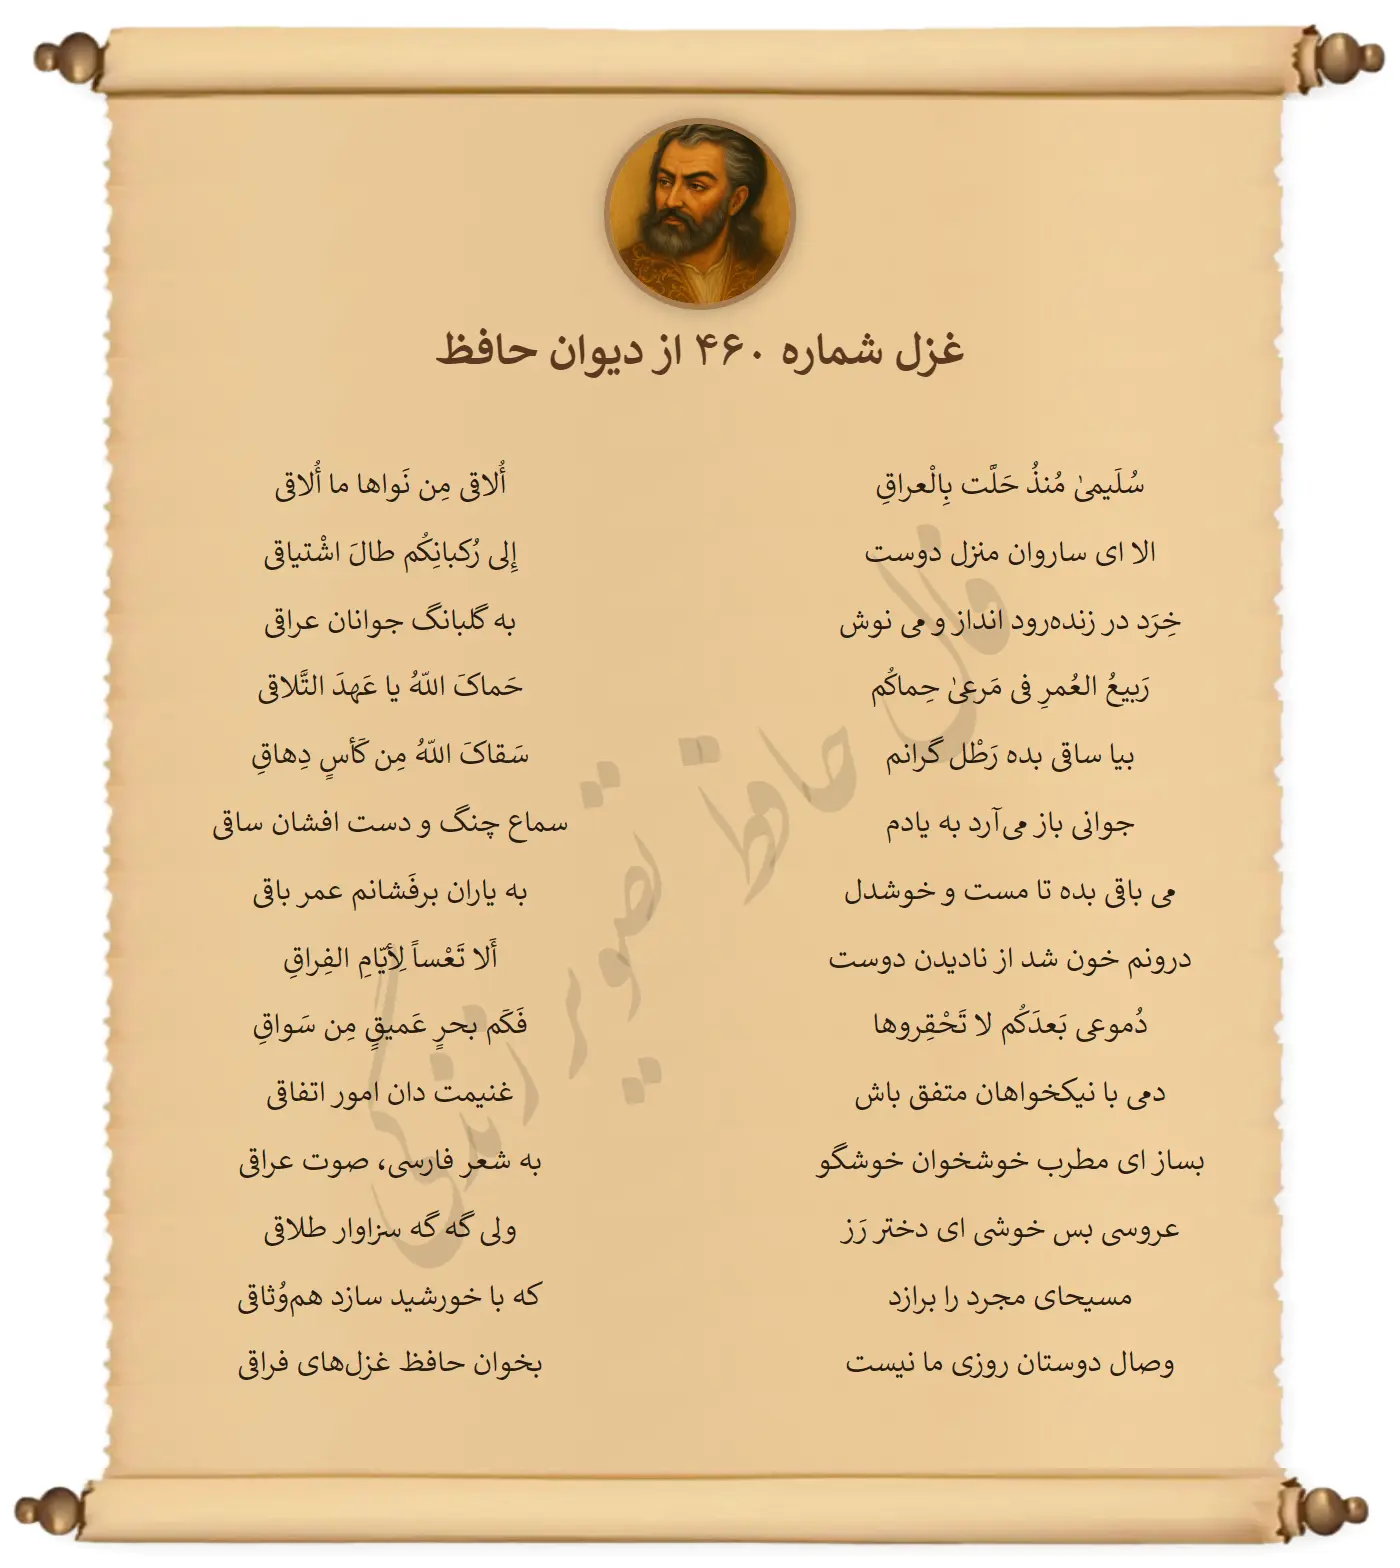 غزل شماره ۴۶۰ از دیوان حافظ
سُلَیمیٰ مُنذُ حَلَّت بِالْعراقِ
أُلاقی مِن نَواها ما أُلاقی
الا ای ساروان منزل دوست
إِلی رُکبانِکُم طالَ اشْتیاقی
خِرَد در زنده‌رود انداز و می نوش
به گلبانگ جوانان عراقی
رَبیعُ العُمرِ فی مَرعیٰ حِماکُم
حَماکَ اللّهُ یا عَهدَ التَّلاقی
بیا ساقی بده رَطْل گرانم
سَقاکَ اللّهُ مِن کَأسٍ دِهاقِ
جوانی باز می‌آرد به یادم
سماع چنگ و دست افشان ساقی
می باقی بده تا مست و خوشدل
به یاران برفَشانم عمر باقی
درونم خون شد از نادیدن دوست
أَلا تَعْساً لِأیّامِ الفِراقِ
دُموعی بَعدَکُم لا تَحْقِروها
فَکَم بحرٍ عَمیقٍ مِن سَواقِ
دمی با نیکخواهان متفق باش
غنیمت دان امور اتفاقی
بساز ای مطرب خوشخوان خوشگو
به شعر فارسی، صوت عراقی
عروسی بس خوشی ای دختر رَز
ولی گه گه سزاوار طلاقی
مسیحای مجرد را برازد
که با خورشید سازد هم‌وُثاقی
وصال دوستان روزی ما نیست
بخوان حافظ غزل‌های فراقی
فال حافظ تصویر زندگی